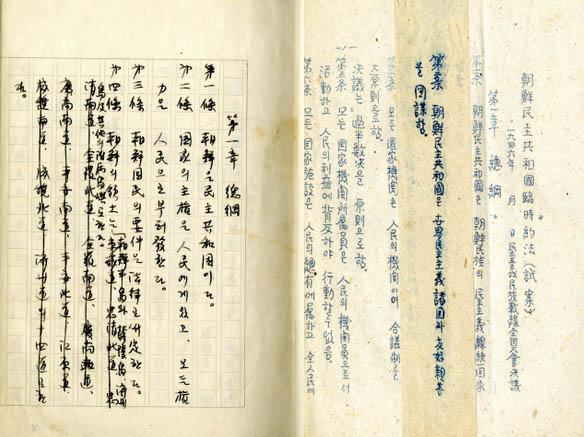 朝鮮民主共和國臨時約法(試案)
一九四六年 月 日 民主主義民族戰線全国大會決議
第一章 總綱。
朝鮮民主共和國은 朝鮮民族의 民主主義 線統一国家
朝鮮民主共和國은 世界民主主義諸国과 友好親善
을 図謀함。
모든 國家機関은 人民의 機関이며 合議制를
大原則으로함。
決議는 過半数決을 原則으로함。
第五条 모든 国家機関所属員은 人民의 機関員으로서
活動하고 人民의 利益에 背反하야 行動할수없음。
第六条 모든 国家施設은 人民의 總有에 属하고 全人民에
第一章 總綱
第一條 朝鮮은 民主共和国이다。
第二條 國家의 主權은 人民에게 있고、모든 權
力은 人民으로부터 發한다。
第三條 朝鮮国民의 要件은 法律로써 定한다。
第四條 朝鮮의 領土는 朝鮮半島와 鬱陵島
京畿道、忠淸北道、忠
淸南道、全羅北道、全羅南道、慶尙北道、
慶尙南道、平安南道、平安北道、江原道、
咸鏡南道、咸鏡北道、濟州道의 十四道로한
다。